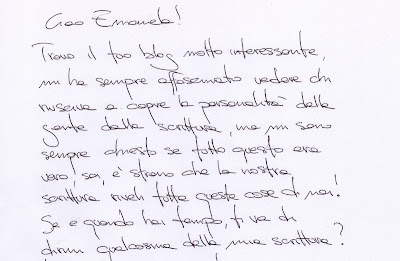 Ciao Emanuela!
Trovo il tuo blog molto interessante,
mi ha sempre affascinato vedere chi
riusciva a capire la personalità della
gente dalla scrittura, ma mi sono
sempre chiesto se tutto questo era
vero, sai, e' strano che la nostra
scrittura riveli tutte queste cose di noi!
Se e quando hai tempo, ti va di
dirmi qualcosina della mia scrittura?